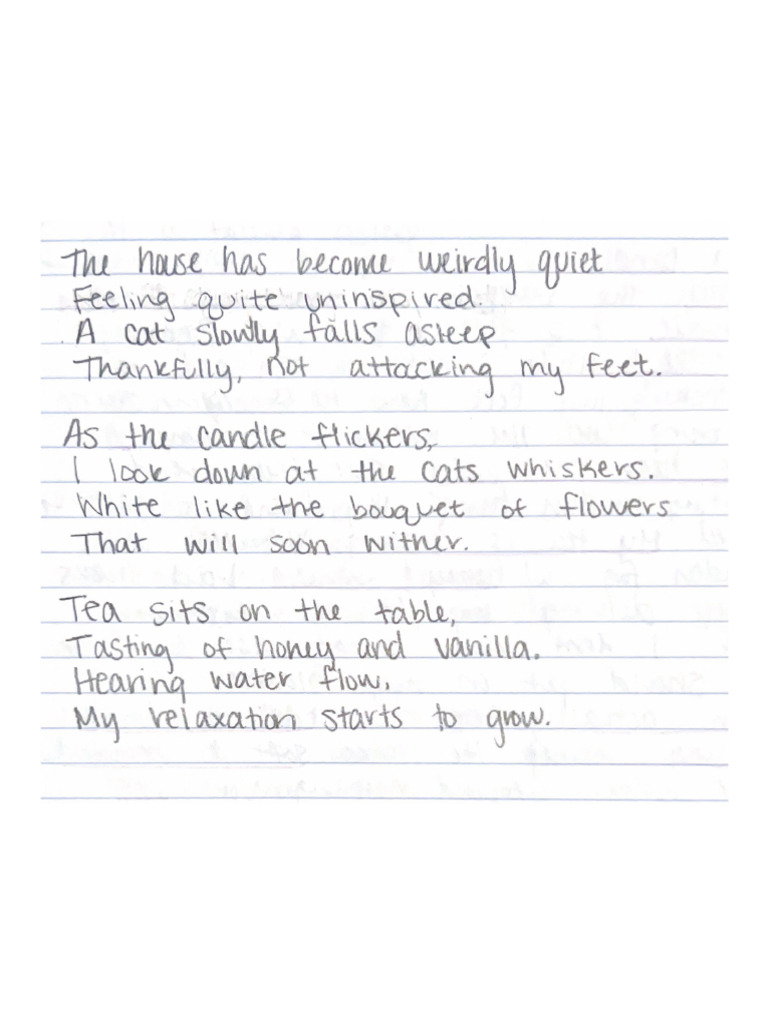 The house has become weirdly quiet
Feeling quite uninspired.
A cat slowly falls asleep
Thankfully, not attacking my feet.
As the candle flickers,
I look down at the cats whiskers.
White like the bouquet of flowers
That will soon wither.
Tea sits on the table,
Tasting of honey and vanilla.
Hearing water flow,
My relaxation starts to grow.